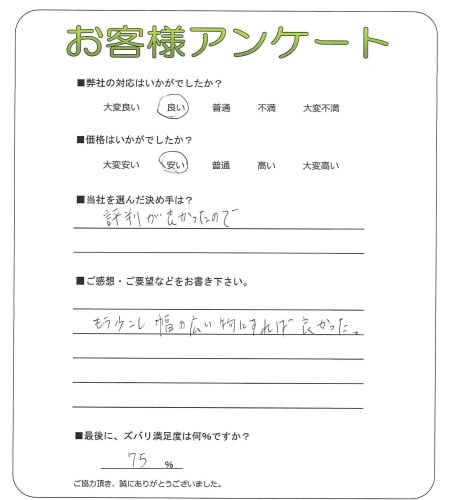 お客様アンケート
■弊社の対応はいかがでしたか？
大変良い 良い 普通 不満 大変不満
■価格はいかがでしたか？
大変安い 安い 普通 高い 大変高い
■当社を選んだ決め手は？
評判が良かったので
■ご感想・ご要望などをお書き下さい。
もう少こし幅の広い物にすれば良かった。
■最後に、ズバリ満足度は何％ですか？
75 ％
ご協力頂き、誠にありがとうございました。